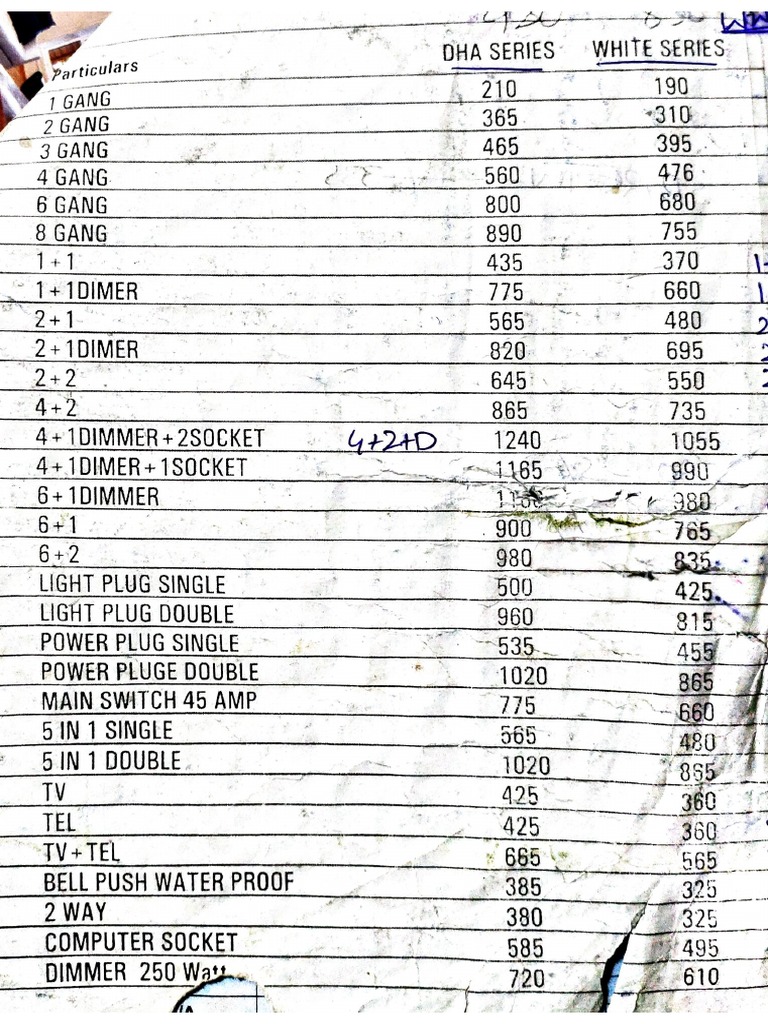 DHA SERIES WHITE SERIES
Particulars
1 GANG 210 190
2 GANG 365 310
3 GANG 465 395
4 GANG 560 476
6 GANG 800 680
8 GANG 890 755
1+1 435 370
1+1DIMER 775 660
2+1 565 480
2+1DIMER 820 695
2+2 645 550
4+2 865 735
4+1DIMMER+2SOCKET 4+2+D 1240 1055
4+1DIMER+1SOCKET 1165 990
6+1DIMMER 980
6+1 900 765
6+2 980 835
LIGHT PLUG SINGLE 500 425
LIGHT PLUG DOUBLE 960 815
POWER PLUG SINGLE 535 455
POWER PLUGE DOUBLE 1020 865
MAIN SWITCH 45 AMP 775 660
5 IN 1 SINGLE 565 480
5 IN 1 DOUBLE 1020 865
TV 425 360
TEL 425 360
TV+TEL 665 565
BELL PUSH WATER PROOF 385 325
2 WAY 380 325
COMPUTER SOCKET 585 495
DIMMER 250 Watt 720 610